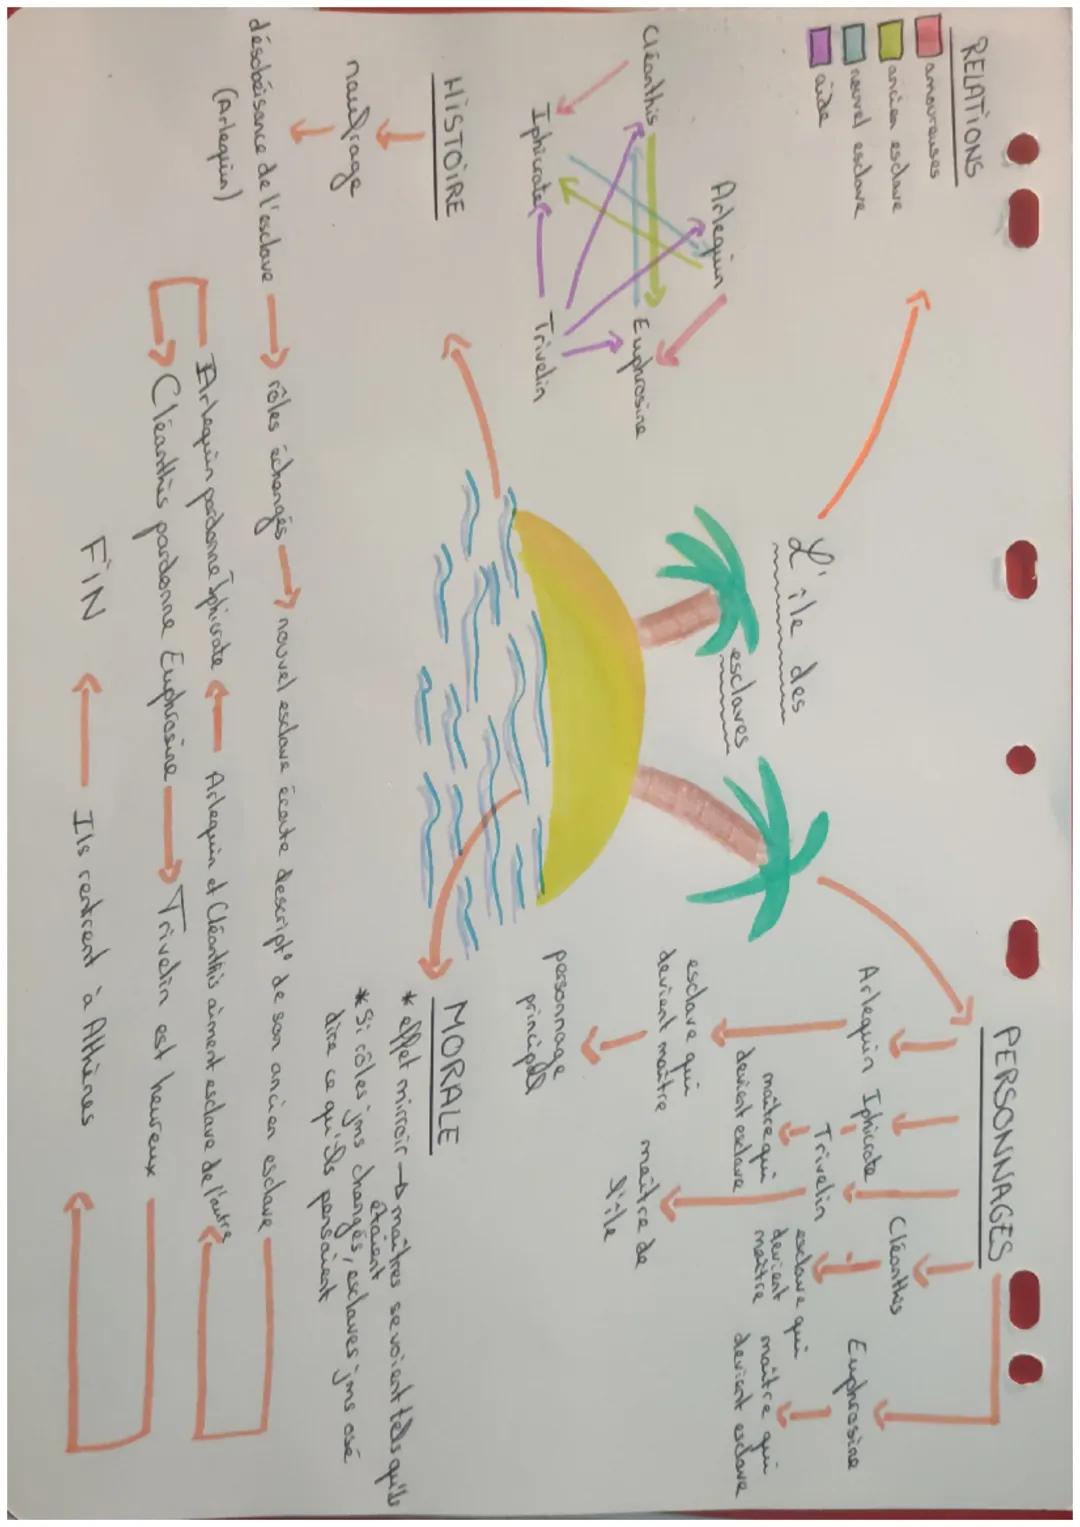 L'île des
esclaves
RELATIONS
amoureuses
ancien esclave
nouvel esclave
aide
Arlequin
Cléanthis
Euphrosine
Iphicrate
Trivelin
PERSONNAGES
Arlequin
Iphicrate
Trivelin
Cléanthis
Euphrosine
esclave qui
devient maître
personnage
principal
maître qui
devient esclave
maître de
l'île
esclave qui
devient
maître
maître qui
devient esclave
HISTOIRE
naufrage
désobéisance de l'esclave
(Arlequin)
rôles échangés
nouvel esclave écoute descript° de son ancien esclave
Arlequin et Cléanthis aiment esclave de l'autre
Arlequin pardonne Iphicrate
Cléanthis pardonne Euphrosine
Trivelin est heureux
Ils rentrent à Athènes
FIN
MORALE
* effet mirroir → maîtres se voient tels qu'ils
étaient
* Si rôles jms changés, esclaves jms osé
dire ce qu'ils pensaient